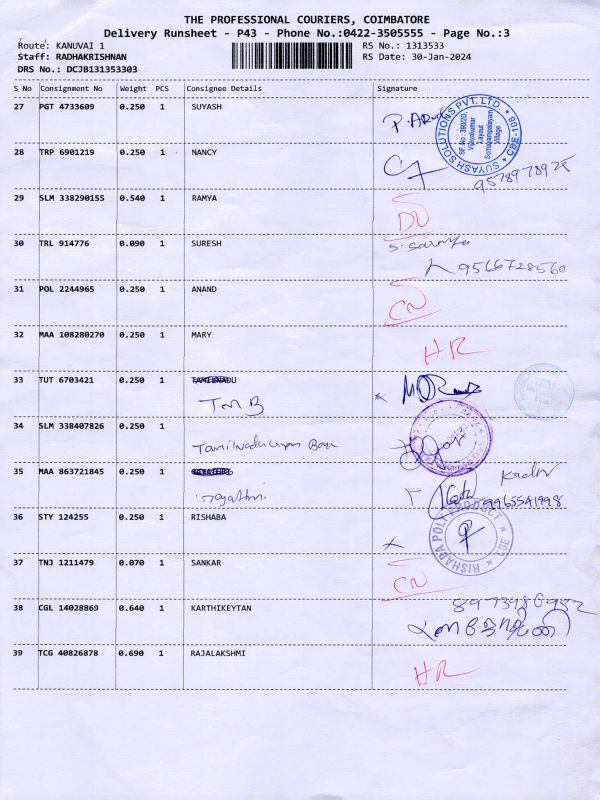 THE PROFESSIONAL COURIERS, COIMBATORE
Delivery Runsheet - P43 - Phone No.:0422-3505555 - Page No.:3
Route: KANUVAI 1 RS No.: 1313533
Staff: RADHAKRISHNAN RS Date: 30-Jan-2024
DRS No.: DCJB131353303
S No Consignment No Weight PCS Consignee Details Signature
27 PGT 4733609 0.250 1 SUYASH
SUYASH SOLUTIONS PVT. LTD. * CBE-108 *
SF No: 380/2D,
Vijayakumar
Layout
Somaiyampalayam
Village
28 TRP 6901219 0.250 1 NANCY
9578978925
29 SLM 338290155 0.540 1 RAMYA
DL
30 TRL 914776 0.090 1 SURESH S. Saranya
9566728560
31 POL 2244965 0.250 1 ANAND CN
32 MAA 108280270 0.250 1 MARY HR
33 TUT 6703421 0.250 1 TAMILNADU
TMB
34 SLM 338407826 0.250 1
Tamilnadu
35 MAA 863721845 0.250 1
9965541998
36 STY 124255 0.250 1 RISHABA
RISHABA POLY PRODUCT * CBE *
37 TNJ 1211479 0.070 1 SANKAR CN
38 CGL 14028869 0.640 1 KARTHIKEYTAN
39 TCG 40826878 0.690 1 RAJALAKSHMI HR